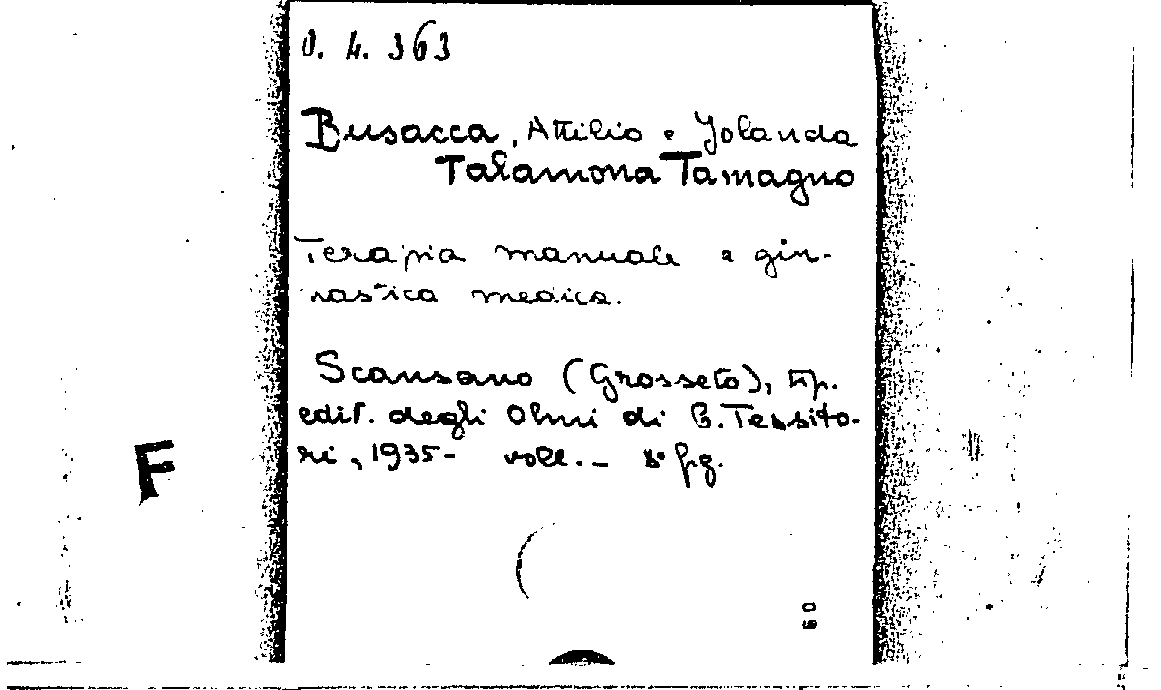 0. 4. 363
Busacca, Attilio e Jolanda
Talamona Tamagno
Terapia manuale e gin-
nastica medica.
Scansano (Grosseto), tip.
edit. degli Olmi di C. Tessito-
ri, 1935- voll.- 8° fig.
F